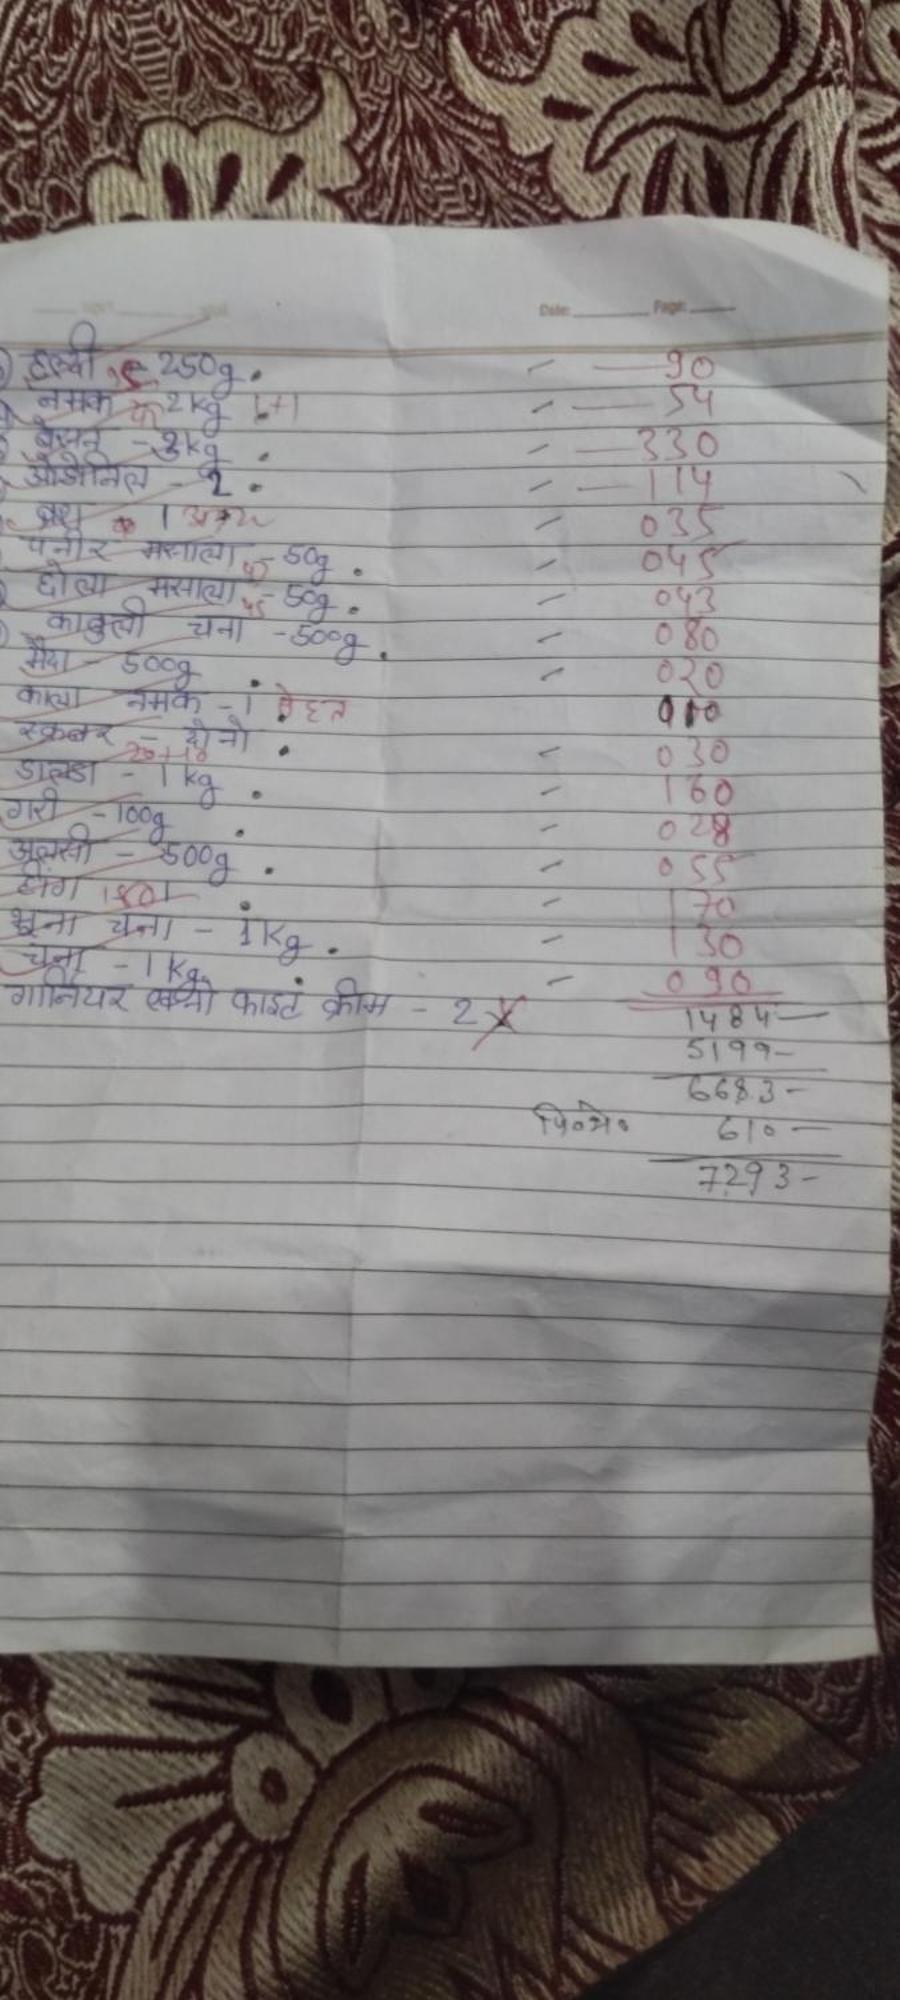 Date: Page:
हल्दी - 250g. - 90
नमक 2kg 1+1 - 54
बेसन - 3kg. - 330
ओडोनिल - 2. - 114
ब्रश 1 - 035
पनीर मसाला - 50g. - 045
छोला मसाला - 50g. - 043
काबुली चना - 500g. - 080
मैदा - 500g - 020
काला नमक - 1 010
स्क्रबर - दोनो 20+10 - 030
डालडा - 1kg. - 160
गरी - 100g - 028
अलसी - 500g. - 055
हींग 170
भूना चना - 1kg. - 130
चना - 1kg. - 090
गार्नियर क्रीम - 2 X
1484-
5199-
6683-
610-
7293-